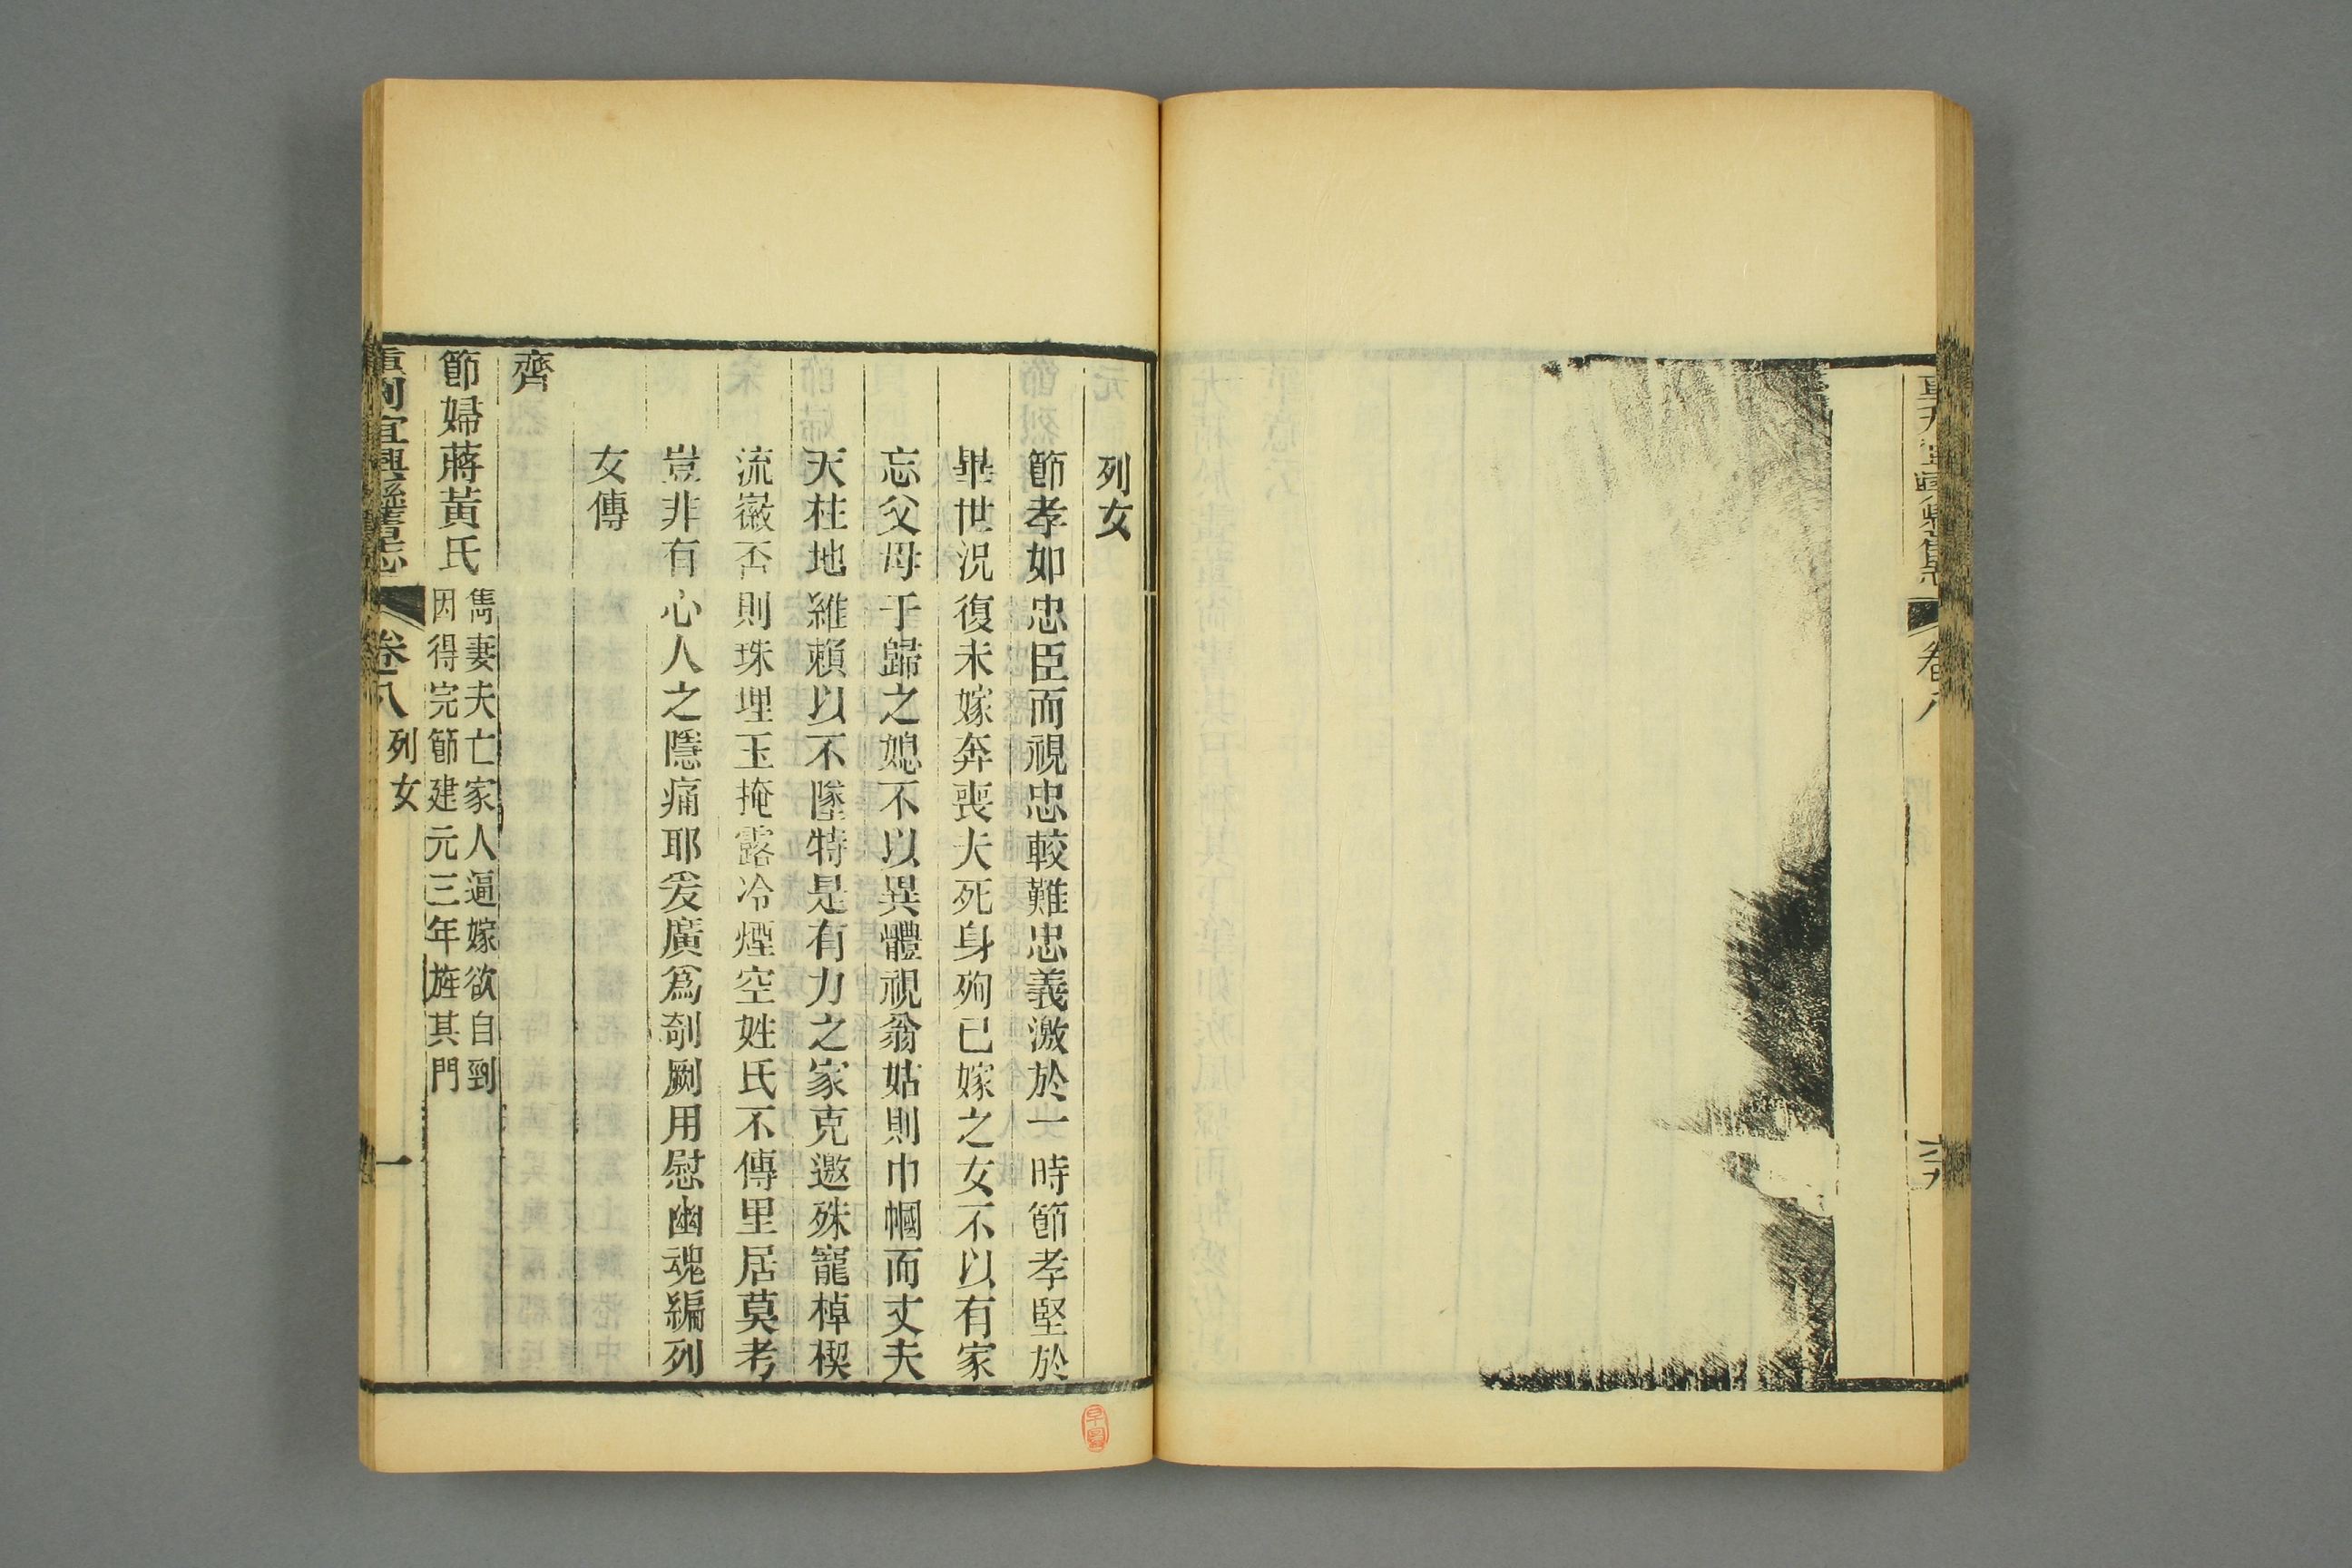 卷八
列女
節孝如忠臣而視忠較難忠義激於一時節孝堅於
畢世況復未嫁奔喪夫死身殉已嫁之女不以有家
忘父母于歸之媳不以異體視翁姑則巾幗而丈夫
天柱地維賴以不墜特是有力之家克邀殊寵棹楔
流徽否則珠埋玉掩露冷煙空姓氏不傳里居莫考
豈非有心人之隱痛耶爰廣爲剞劂用慰幽魂編列
女傳
齊
節婦蔣黃氏
雋妻夫亡家人逼嫁欲自剄
因得完節建元三年旌其門
重刊宜興縣舊志 卷八 列女 一